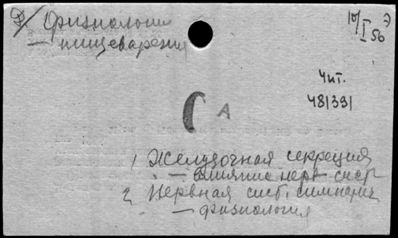 Физиология
— пищеварения
10/I 56
Чит.
48/33/
С А
1. Желудочная секреция
— влияние нерв. сист.
2. Нервная сист. симпатич.
— физиология